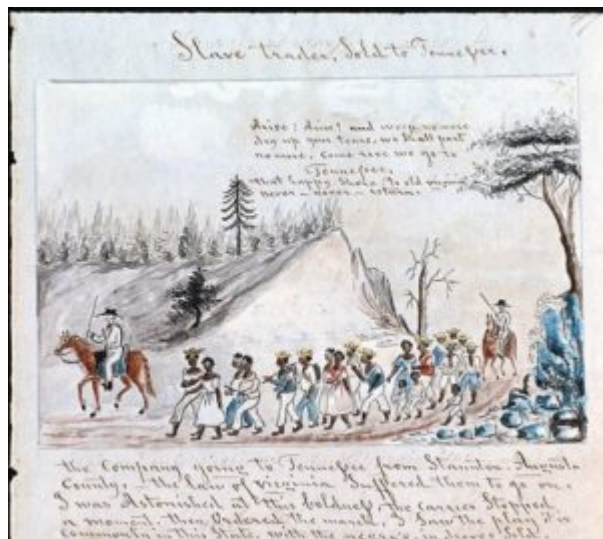 Slave trader, Sold to Tennessee.
Arise! Arise! and weep no more
dry up your tears, we shall part
no more, Come rose we go to
Tennessee,
that happy Shore, to old virginia
never - never - return.
the Company going to Tennessee from Staunton, Augusta
County, - the law of virginia Suffered them to go on.
I was Astonished at this boldness, the carrier Stopped
a moment, then Ordered the march, I Saw the play it is
commonly in this State, with the negro's in droves Sold.